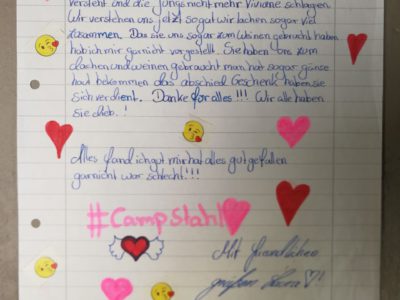 versteht und die Jungs nicht mehr Viviane schlagen.
Wir verstehen uns jetzt so gat wir lachen sogar viel
zusammen. Das sie uns sogar zum Weinen gebracht haben
hab ich mir garnicht vorgestellt. Sie haben uns zum
lachen und weinen gebraucht man hat sogar gänse
haut bekommen das abschied Geschenk haben sie
sich verdient. Danke für alles!!! Wir alle haben
sie Lieb!
Alles fand ich gut mir hat alles gut gefallen
garnicht war schlecht!!!
#CampStahl
Mit freundlichen
grüßen